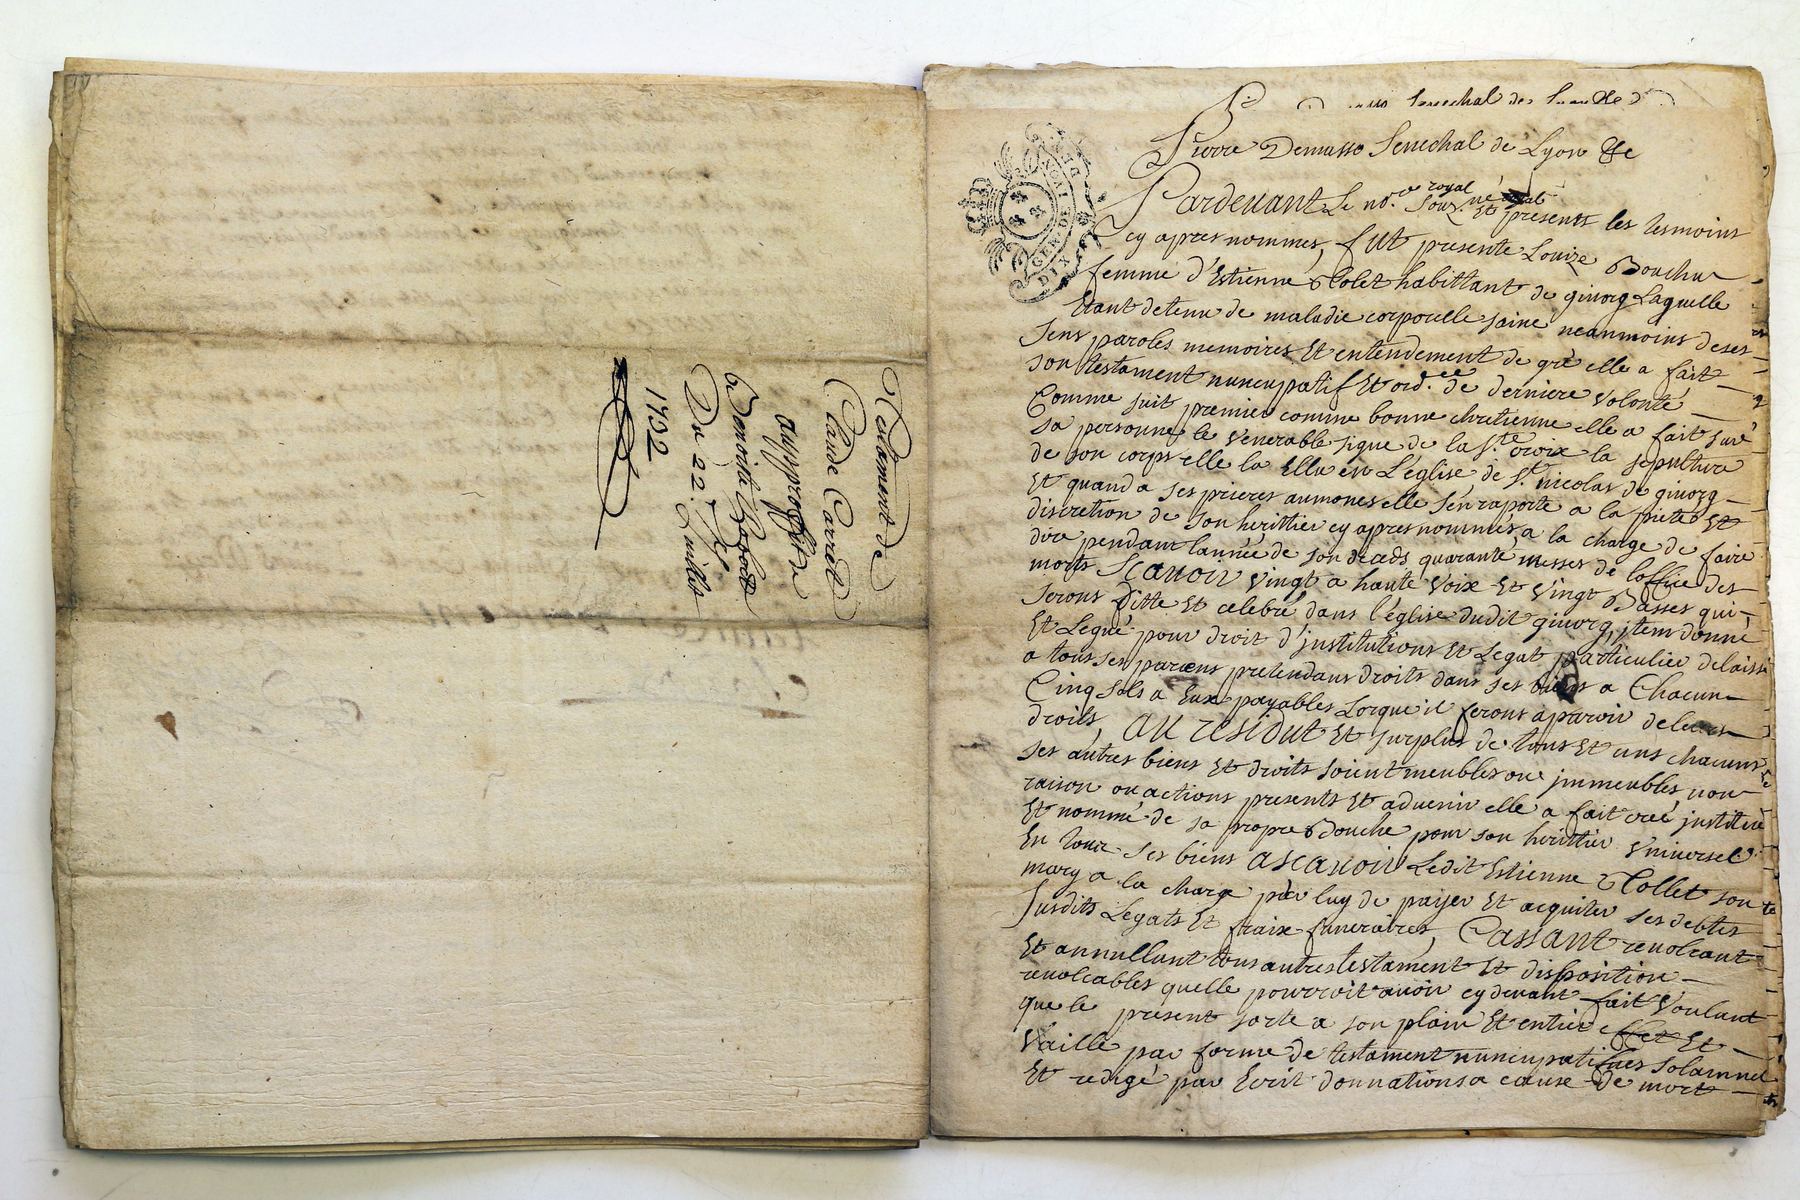 Testament de
Claude Carret
au proffit de
Benoiste
Du 22.e Juillet
1732
Senechal des
Pierre Demasso Senechal de Lyon &c
GEN. DE LYON
DIX
Pardevant Le no.re royal souz.né Et présents les tesmoins
cy apres nommes, fut presente Louize Bouchu
femme d'Estienne Collet habittant de givorg Laquelle
Etant detenu de maladie corporelle saine neanmoins de ses
sens paroles memoires Et entendement de gré elle a fait
son testament nuncupatif Et ord.ce de derniere volonté
Comme suit premier comme bonne chretienne elle a fait sur
sa personne le venerable signe de la S.te croix la sepulture
de son corps elle la Ellu en L'église de S.t nicolas de givorg
Et quand a ses prieres aumones elle s'en raporte a la pieté Et
discretion de son herittier cy apres nommés, a la charge de faire
dire pendant l'année de son deceds quarante messes de l'office des
morts Scavoir vingt a haute voix Et vingt Basses qui
serons ditte Et celebré dans l'église dudit givorg, jtem donné
Et Legué pour droit d'jnstitutions Et Legat particulier delaissé
a tous ses parens pretendans droits dans ses biens a Chacun
Cinq sols a Eux payables Lorque il serons aparoir de leurs
droits, au residut Et surplus de tous Et uns chacuns
ses autres biens Et droits soient meubles ou jmmeubles nom
raison ou actions presents Et advenir elle a fait creé jnstitué
Et nommé de sa propre Bouche pour son herittier Vniversel
En tous ses biens ascavoir Ledit Estienne Collet son
mary a la charge par luy de payer Et acquiter ses debtes
susdits Legats Et fraix funeraires, Cassant revolcant
Et annullant tous autres testament Et disposition
revolcables quelle pourroit avoir cy devant fait voulant
que le present sorte a son plain Et entier effet Et
vaille par forme de testament nuncupatifues solamnel
Et redigé par Ecrit donnations a cause de mort